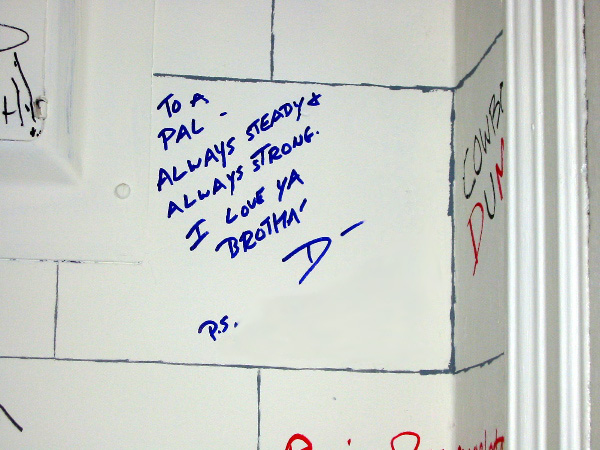 TO A
PAL -
ALWAYS STEADY &
ALWAYS STRONG.
I LOVE YA
BROTHA'
D-
P.S.